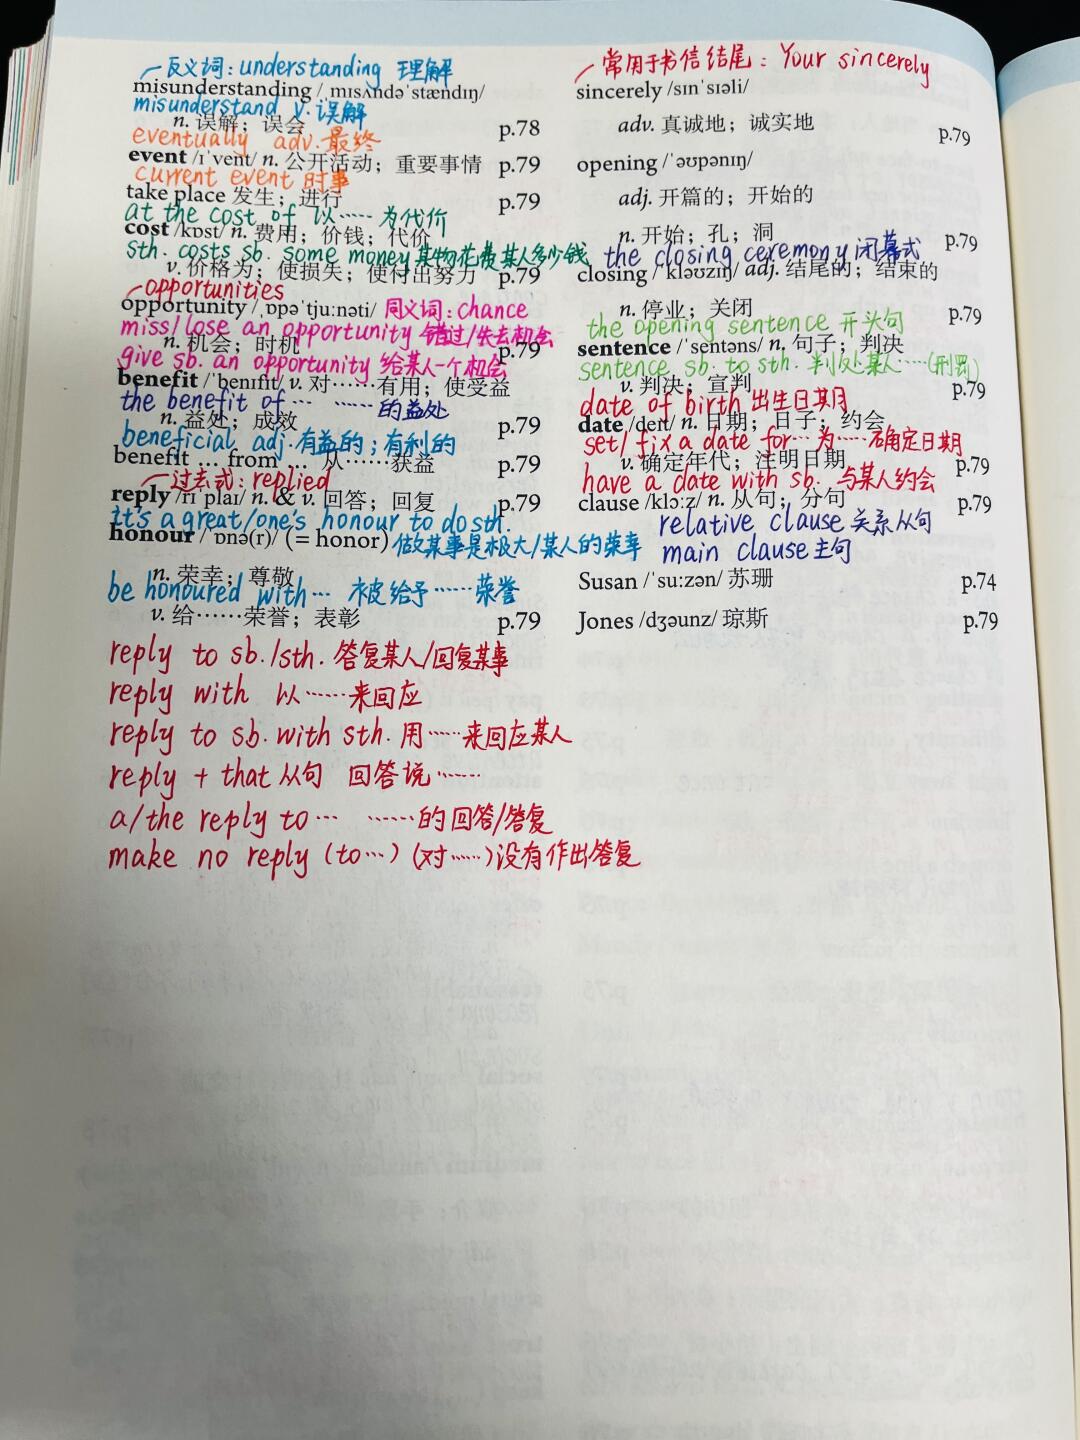 反义词：understanding 理解
misunderstanding /ˌmɪsʌndəˈstændɪŋ/
misunderstand v. 误解
n. 误解；误会 p.78
eventually adv. 最终
event /ɪˈvent/ n. 公开活动；重要事情 p.79
current event 时事
take place 发生；进行 p.79
at the cost of 以…… 为代价
cost /kɒst/ n. 费用；价钱；代价
sth. costs sb. some money 某物花费某人多少钱
v. 价格为；使损失；使付出努力 p.79
opportunities
opportunity /ˌɒpəˈtjuːnəti/ 同义词：chance
miss/lose an opportunity 错过/失去机会
n. 机会；时机 p.79
give sb. an opportunity 给某人一个机会
benefit /ˈbenɪfɪt/ v. 对……有用；使受益
the benefit of … ……的益处
n. 益处；成效 p.79
beneficial adj. 有益的；有利的
benefit … from … 从……获益 p.79
过去式：replied
reply /rɪˈplaɪ/ n. & v. 回答；回复 p.79
it's a great/one's honour to do sth.
honour /ˈɒnə(r)/ (= honor) 做某事是极大/某人的荣幸
n. 荣幸；尊敬
be honoured with … 被给予……荣誉
v. 给……荣誉；表彰 p.79
reply to sb./sth. 答复某人/回复某事
reply with 以……来回应
reply to sb. with sth. 用……来回应某人
reply + that 从句 回答说……
a/the reply to … ……的回答/答复
make no reply (to…) (对……)没有作出答复
常用于书信结尾：Your sincerely
sincerely /sɪnˈsɪəli/
adv. 真诚地；诚实地 p.79
opening /ˈəʊpənɪŋ/
adj. 开篇的；开始的
n. 开始；孔；洞 p.79
the closing ceremony 闭幕式
closing /ˈkləʊzɪŋ/ adj. 结尾的；结束的
n. 停业；关闭 p.79
the opening sentence 开头句
sentence /ˈsentəns/ n. 句子；判决
sentence sb. to sth. 判处某人……(刑罚)
v. 判决；宣判 p.79
date of birth 出生日期
date /deɪt/ n. 日期；日子；约会
set/fix a date for … 为……确定日期
v. 确定年代；注明日期 p.79
have a date with sb. 与某人约会
clause /klɔːz/ n. 从句；分句 p.79
relative clause 关系从句
main clause 主句
Susan /ˈsuːzən/ 苏珊 p.74
Jones /dʒəʊnz/ 琼斯 p.79